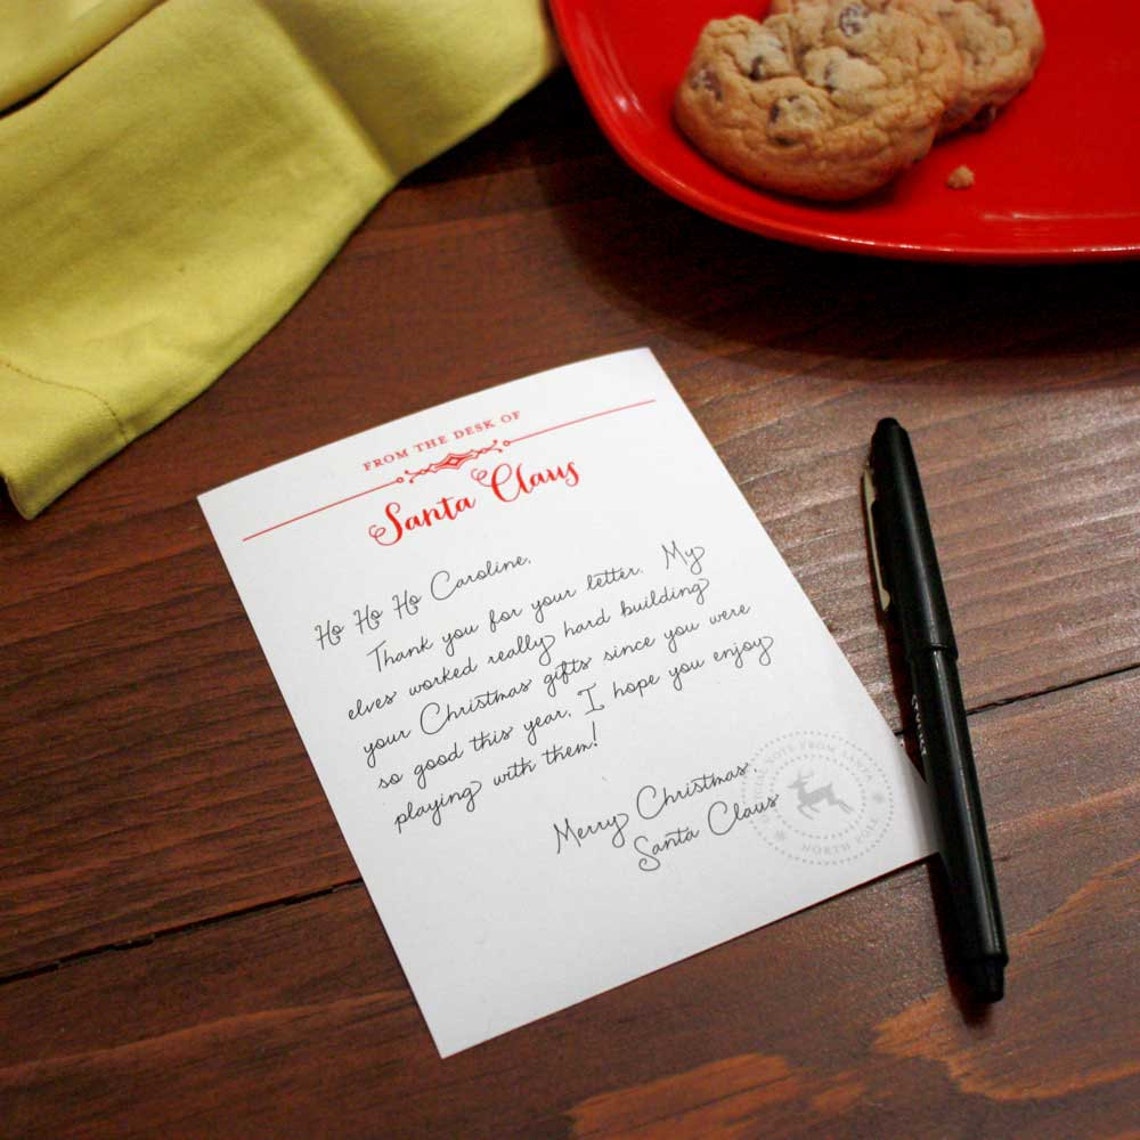 FROM THE DESK OF
Santa Claus
Ho Ho Ho Caroline,
Thank you for your letter. My
elves worked really hard building
your Christmas gifts since you were
so good this year. I hope you enjoy
playing with them!
Merry Christmas,
Santa Claus
NOTE FROM SANTA
NORTH POLE